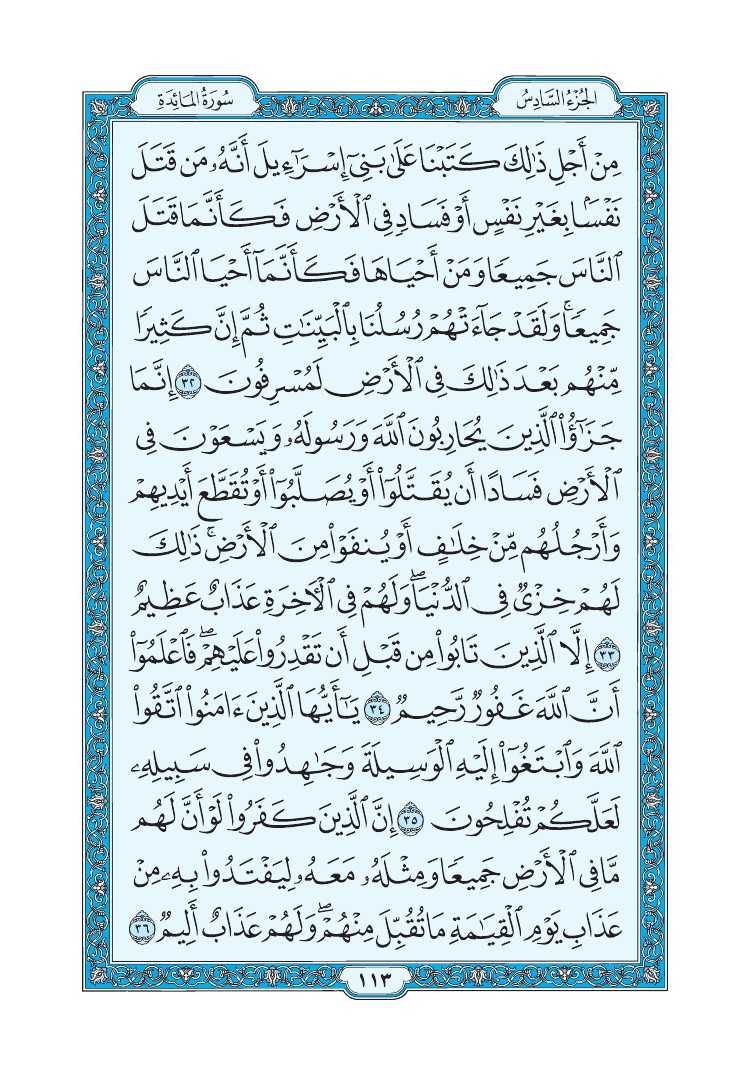 الجُزْءُ السَّادِسُ
سُورَةُ المَائِدَةِ
مِنْ أَجْلِ ذَٰلِكَ كَتَبْنَا عَلَىٰ بَنِىٓ إِسْرَٰٓءِيلَ أَنَّهُۥ مَن قَتَلَ
نَفْسَۢا بِغَيْرِ نَفْسٍ أَوْ فَسَادٍ فِى ٱلْأَرْضِ فَكَأَنَّمَا قَتَلَ
ٱلنَّاسَ جَمِيعًا وَمَنْ أَحْيَاهَا فَكَأَنَّمَآ أَحْيَا ٱلنَّاسَ
جَمِيعًا ۚ وَلَقَدْ جَآءَتْهُمْ رُسُلُنَا بِٱلْبَيِّنَٰتِ ثُمَّ إِنَّ كَثِيرًا
مِّنْهُم بَعْدَ ذَٰلِكَ فِى ٱلْأَرْضِ لَمُسْرِفُونَ ٣٢ إِنَّمَا
جَزَٰٓؤُا۟ ٱلَّذِينَ يُحَارِبُونَ ٱللَّهَ وَرَسُولَهُۥ وَيَسْعَوْنَ فِى
ٱلْأَرْضِ فَسَادًا أَن يُقَتَّلُوٓا۟ أَوْ يُصَلَّبُوٓا۟ أَوْ تُقَطَّعَ أَيْدِيهِمْ
وَأَرْجُلُهُم مِّنْ خِلَٰفٍ أَوْ يُنفَوْا۟ مِنَ ٱلْأَرْضِ ۚ ذَٰلِكَ
لَهُمْ خِزْىٌ فِى ٱلدُّنْيَا ۖ وَلَهُمْ فِى ٱلْءَاخِرَةِ عَذَابٌ عَظِيمٌ
٣٣ إِلَّا ٱلَّذِينَ تَابُوا۟ مِن قَبْلِ أَن تَقْدِرُوا۟ عَلَيْهِمْ ۖ فَٱعْلَمُوٓا۟
أَنَّ ٱللَّهَ غَفُورٌ رَّحِيمٌ ٣٤ يَٰٓأَيُّهَا ٱلَّذِينَ ءَامَنُوا۟ ٱتَّقُوا۟
ٱللَّهَ وَٱبْتَغُوٓا۟ إِلَيْهِ ٱلْوَسِيلَةَ وَجَٰهِدُوا۟ فِى سَبِيلِهِۦ
لَعَلَّكُمْ تُفْلِحُونَ ٣٥ إِنَّ ٱلَّذِينَ كَفَرُوا۟ لَوْ أَنَّ لَهُم
مَّا فِى ٱلْأَرْضِ جَمِيعًا وَمِثْلَهُۥ مَعَهُۥ لِيَفْتَدُوا۟ بِهِۦ مِنْ
عَذَابِ يَوْمِ ٱلْقِيَٰمَةِ مَا تُقُبِّلَ مِنْهُمْ ۖ وَلَهُمْ عَذَابٌ أَلِيمٌ ٣٦
١١٣